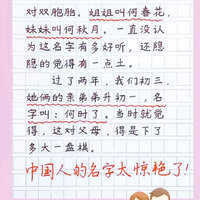 对双胞胎。姐姐叫何春花，
妹妹叫何秋月。一直没认
为这名字有多好听，还隐
隐的觉得有一点土。
过了两年，我们初三
她俩的亲弟弟升初一，名
字叫：何时了。当时就觉
得，这对父母，得是下了
多大一盘棋。
中国人的名字太惊艳了！